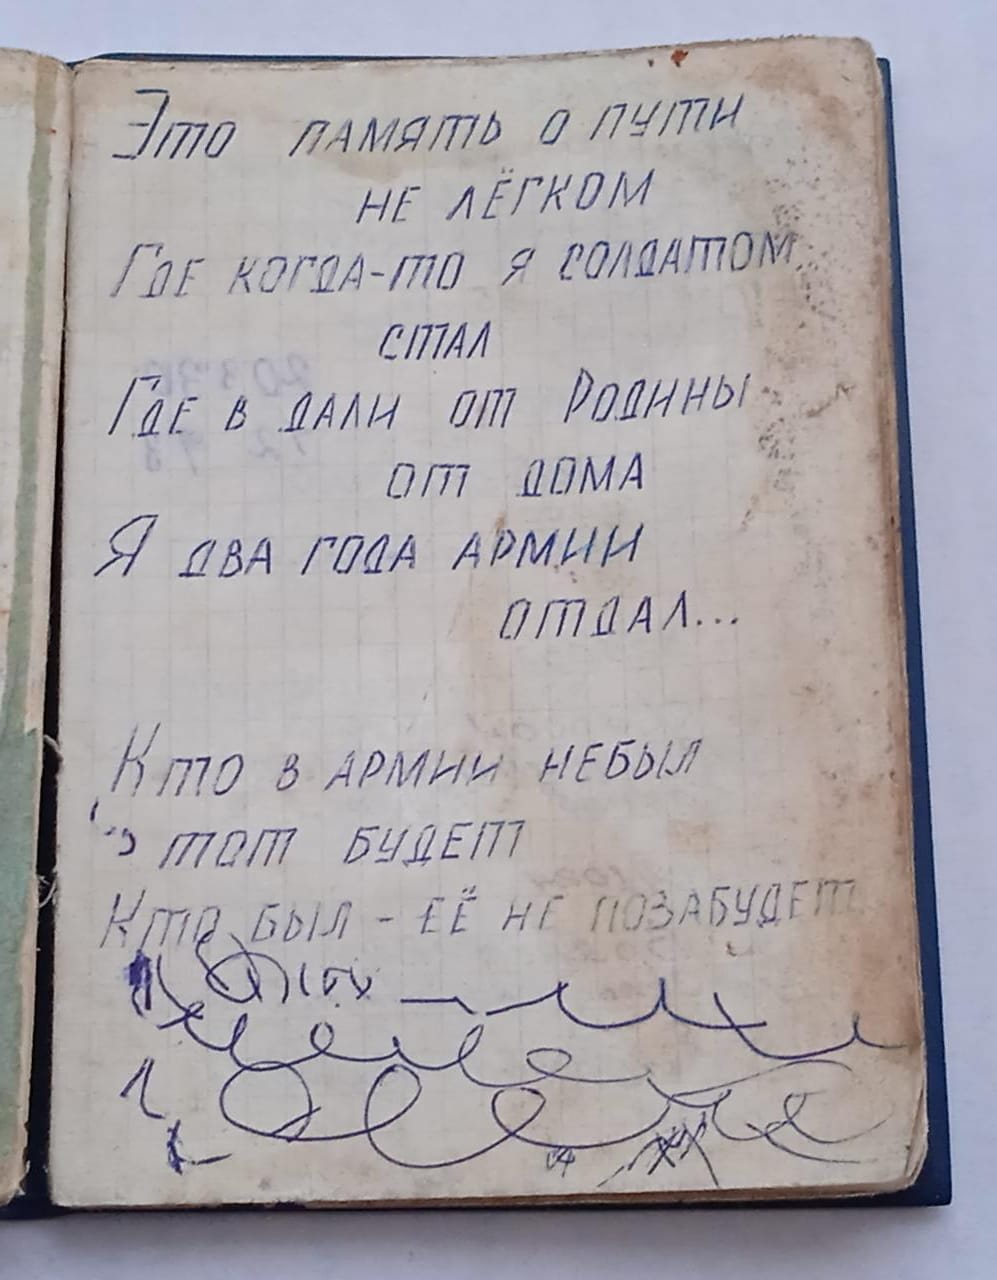 Это память о пути
не лёгком
Где когда-то я солдатом
стал
Где в дали от Родины
от дома
Я два года армии
отдал...
Кто в армии небыл
тот будет
Кто был - её не позабудет